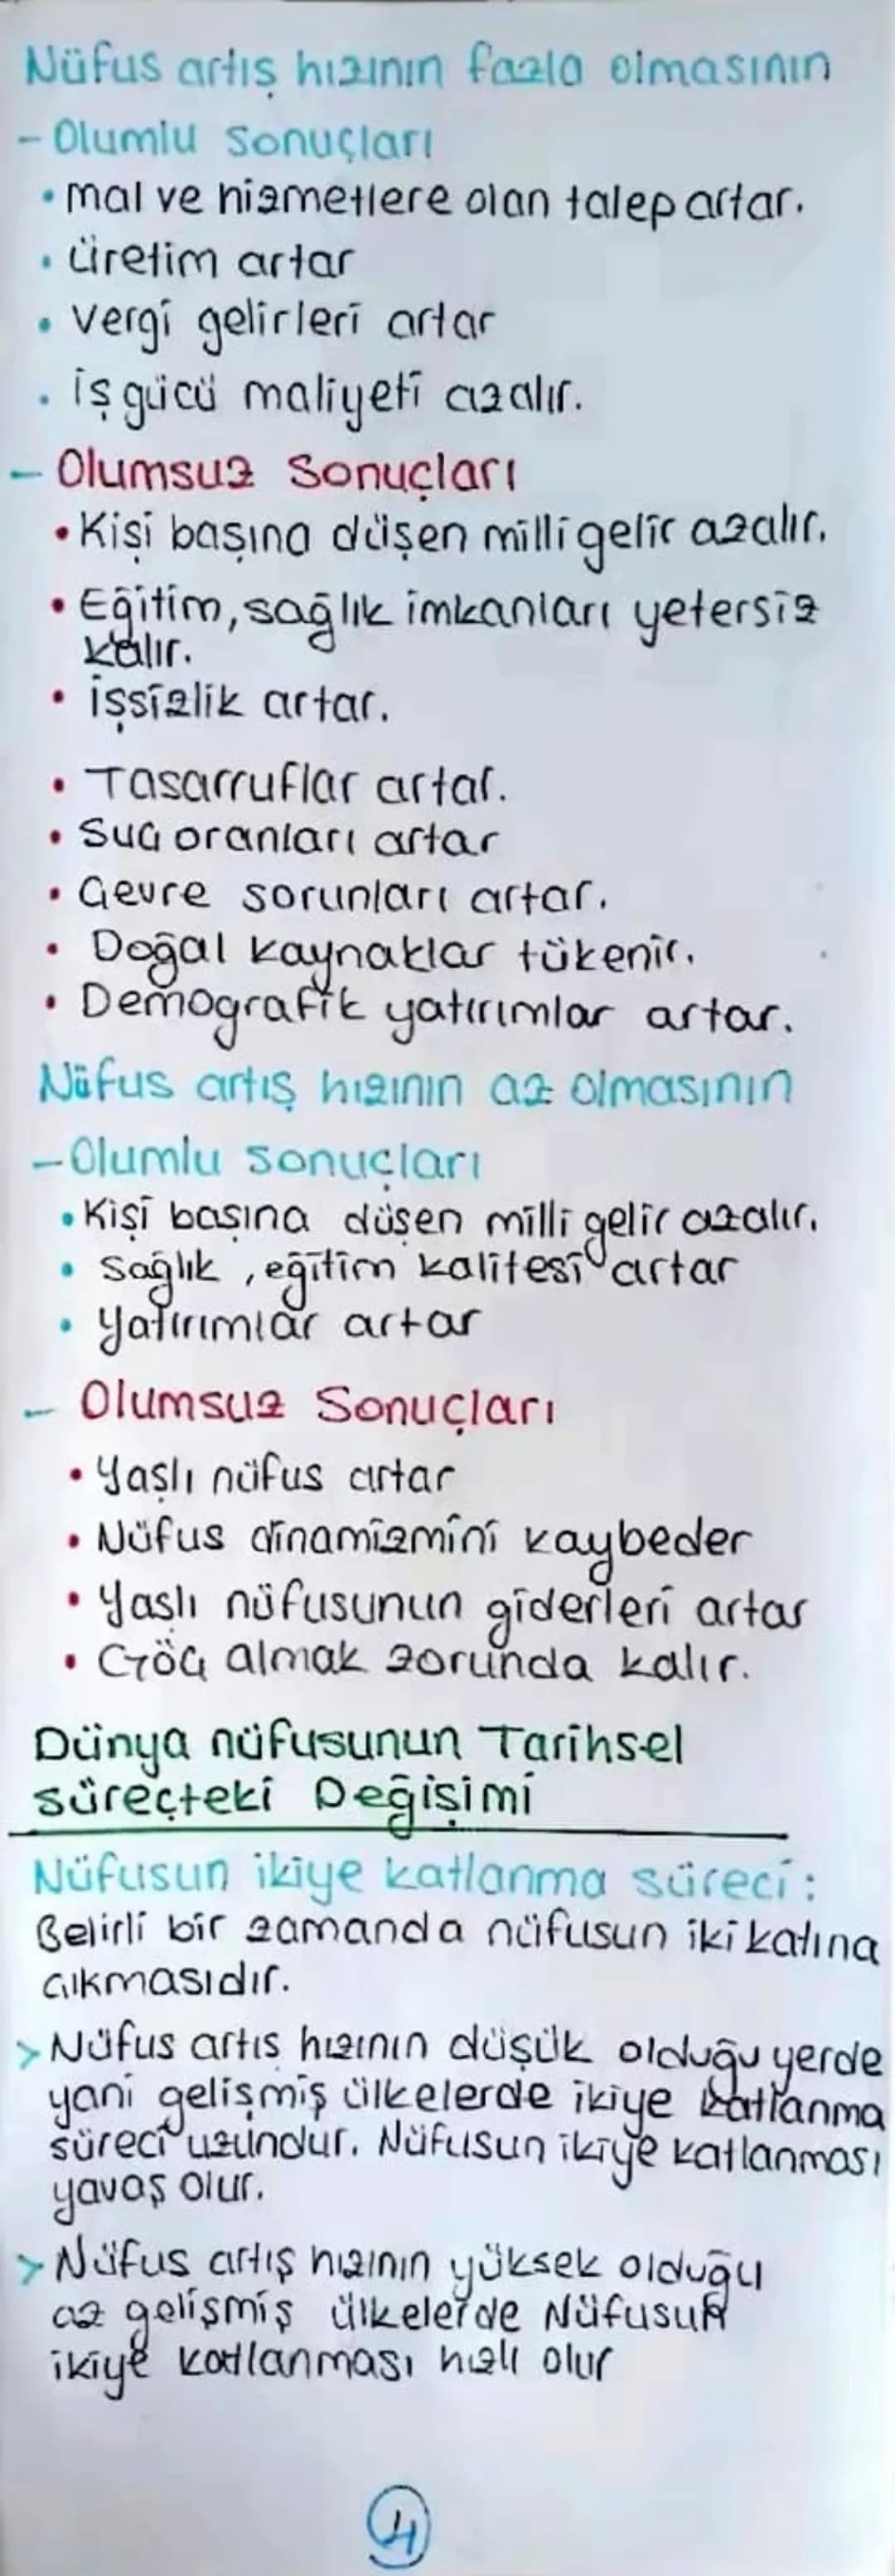 Nüfus artış hızının fazla olmasının
- Olumlu Sonuçları
• mal ve hizmetlere olan talep artar.
• üretim artar
• Vergi gelirleri artar
• iş gücü maliyeti azalır.
- Olumsuz Sonuçları
• Kişi başına düşen milli gelir azalır.
• Eğitim, sağlık imkanları yetersiz
kalır.
• işsizlik artar.
• Tasarruflar artar.
• Suç oranları artar
• Çevre sorunları artar.
• Doğal kaynaklar tükenir.
• Demografik yatırımlar artar.
Nüfus artış hızının az olmasının
- Olumlu sonuçları
• Kişi başına düşen milli gelir azalır.
• Sağlık, eğitim kalitesi artar
• Yatırımlar artar
- Olumsuz Sonuçları
• Yaşlı nüfus artar
• Nüfus dinamizmini kaybeder
• Yaslı nüfusunun giderleri artar
• Göç almak zorunda kalır.
Dünya nüfusunun Tarihsel
süreçteki Değişimi
Nüfusun ikiye katlanma süreci:
Belirli bir zamanda nüfusun iki katına
çıkmasıdır.
> Nüfus artıs hızının düşük olduğu yerde
yani gelişmiş ülkelerde ikiye katlanma
süreci uzundur. Nüfusun ikiye katlanması
yavaş olur.
> Nüfus artış hızının yüksek olduğu
az gelişmiş ülkelerde Nüfusun
ikiye katlanması hızlı olur
4